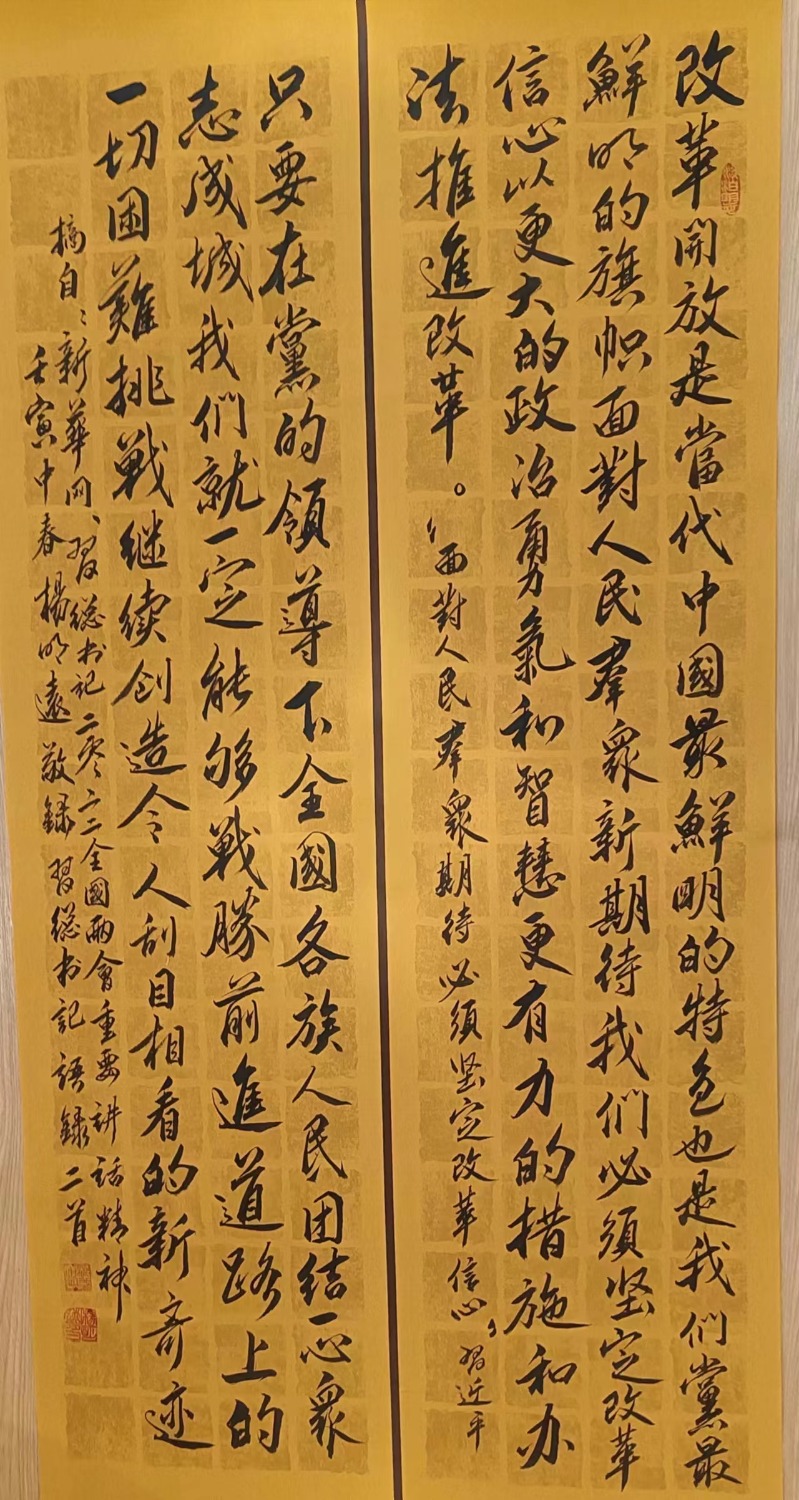 改革開放是當代中國最鮮明的特色也是我們黨最
鮮明的旗帜面對人民羣眾新期待我們必須坚定改革
信心以更大的政治勇氣和智慧更有力的措施和办
法推進改革。
面對人民羣眾期待必須坚定改革信心，習近平
只要在黨的領導下全國各族人民团结一心眾
志成城我們就一定能够戰勝前進道路上的
一切困難挑戰继续创造令人刮目相看的新奇迹
摘自：新華网、習總书記二零二二全國兩會重要讲話精神
壬寅中春楊明遠敬録習總书記語録二首